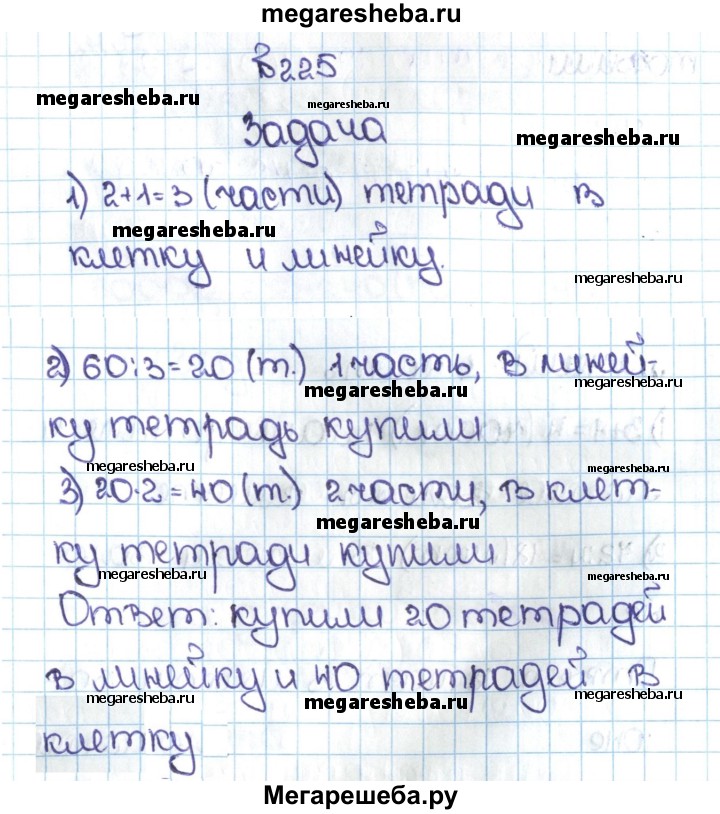 megaresheba.ru
в 225
megaresheba.ru
megaresheba.ru
Задача
megaresheba.ru
1) 2+1=3 (части) тетради в
megaresheba.ru
клетку и линейку.
megaresheba.ru
2) 60:3=20 (т.) 1 часть, в линей-
megaresheba.ru
megaresheba.ru
ку тетрадь купили
megaresheba.ru
megaresheba.ru
3) 20·2=40 (т.) 2 части, в клет-
megaresheba.ru
ку тетради купили
megaresheba.ru
megaresheba.ru
Ответ: купили 20 тетрадей
в линейку и 40 тетрадей в
megaresheba.ru
megaresheba.ru
megaresheba.ru
клетку
Мегарешеба.ру